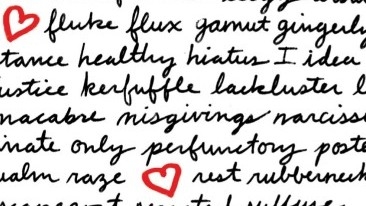 fluke flux gamut gingerly
tance healthy hiatus I idea
ustice kerfuffle lackluster l
macabre misgivings narciss
inate only perfunctory poste
ualm raze rest rubberneck